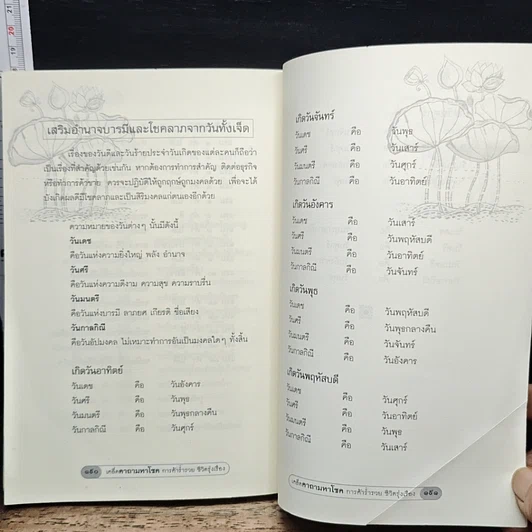 เสริมอำนาจบารมีและโชคลาภจากวันทั้งเจ็ด
เรื่องของวันดีและวันร้ายประจำวันเกิดของแต่ละคนก็ถือว่า
เป็นเรื่องที่สำคัญด้วยเช่นกัน หากต้องการทำการสำคัญ ติดต่อธุรกิจ
หรือทำการค้าขาย ควรจะปฏิบัติให้ถูกฤกษ์ถูกมงคลด้วย เพื่อจะได้
บังเกิดผลดีมีโชคลาภและเป็นสิริมงคลแก่ตนเองอีกด้วย
ความหมายของวันต่างๆ นั้นมีดังนี้
วันเดช
คือวันแห่งความยิ่งใหญ่ พลัง อำนาจ
วันศรี
คือวันแห่งความดีงาม ความสุข ความราบรื่น
วันมนตรี
คือวันแห่งบารมี ลาภยศ เกียรติ ชื่อเสียง
วันกาลกิณี
คือวันอัปมงคล ไม่เหมาะทำการอันเป็นมงคลใดๆ ทั้งสิ้น
เกิดวันอาทิตย์
วันเดช คือ วันอังคาร
วันศรี คือ วันพุธ
วันมนตรี คือ วันพุธกลางคืน
วันกาลกิณี คือ วันศุกร์
เคล็ดคาถามหาโชค การค้าร่ำรวย ชีวิตรุ่งเรือง
เกิดวันจันทร์
วันเดช คือ วันพุธ
วันศรี คือ วันเสาร์
วันมนตรี คือ วันศุกร์
วันกาลกิณี คือ วันอาทิตย์
เกิดวันอังคาร
วันเดช คือ วันเสาร์
วันศรี คือ วันพฤหัสบดี
วันมนตรี คือ วันอาทิตย์
วันกาลกิณี คือ วันจันทร์
เกิดวันพุธ
วันเดช คือ วันพฤหัสบดี
วันศรี คือ วันพุธกลางคืน
วันมนตรี คือ วันจันทร์
วันกาลกิณี คือ วันอังคาร
เกิดวันพฤหัสบดี
วันเดช คือ วันศุกร์
วันศรี คือ วันอาทิตย์
วันมนตรี คือ วันพุธ
วันกาลกิณี คือ วันเสาร์
เคล็ดคาถามหาโชค การค้าร่ำรวย ชีวิตรุ่งเรือง